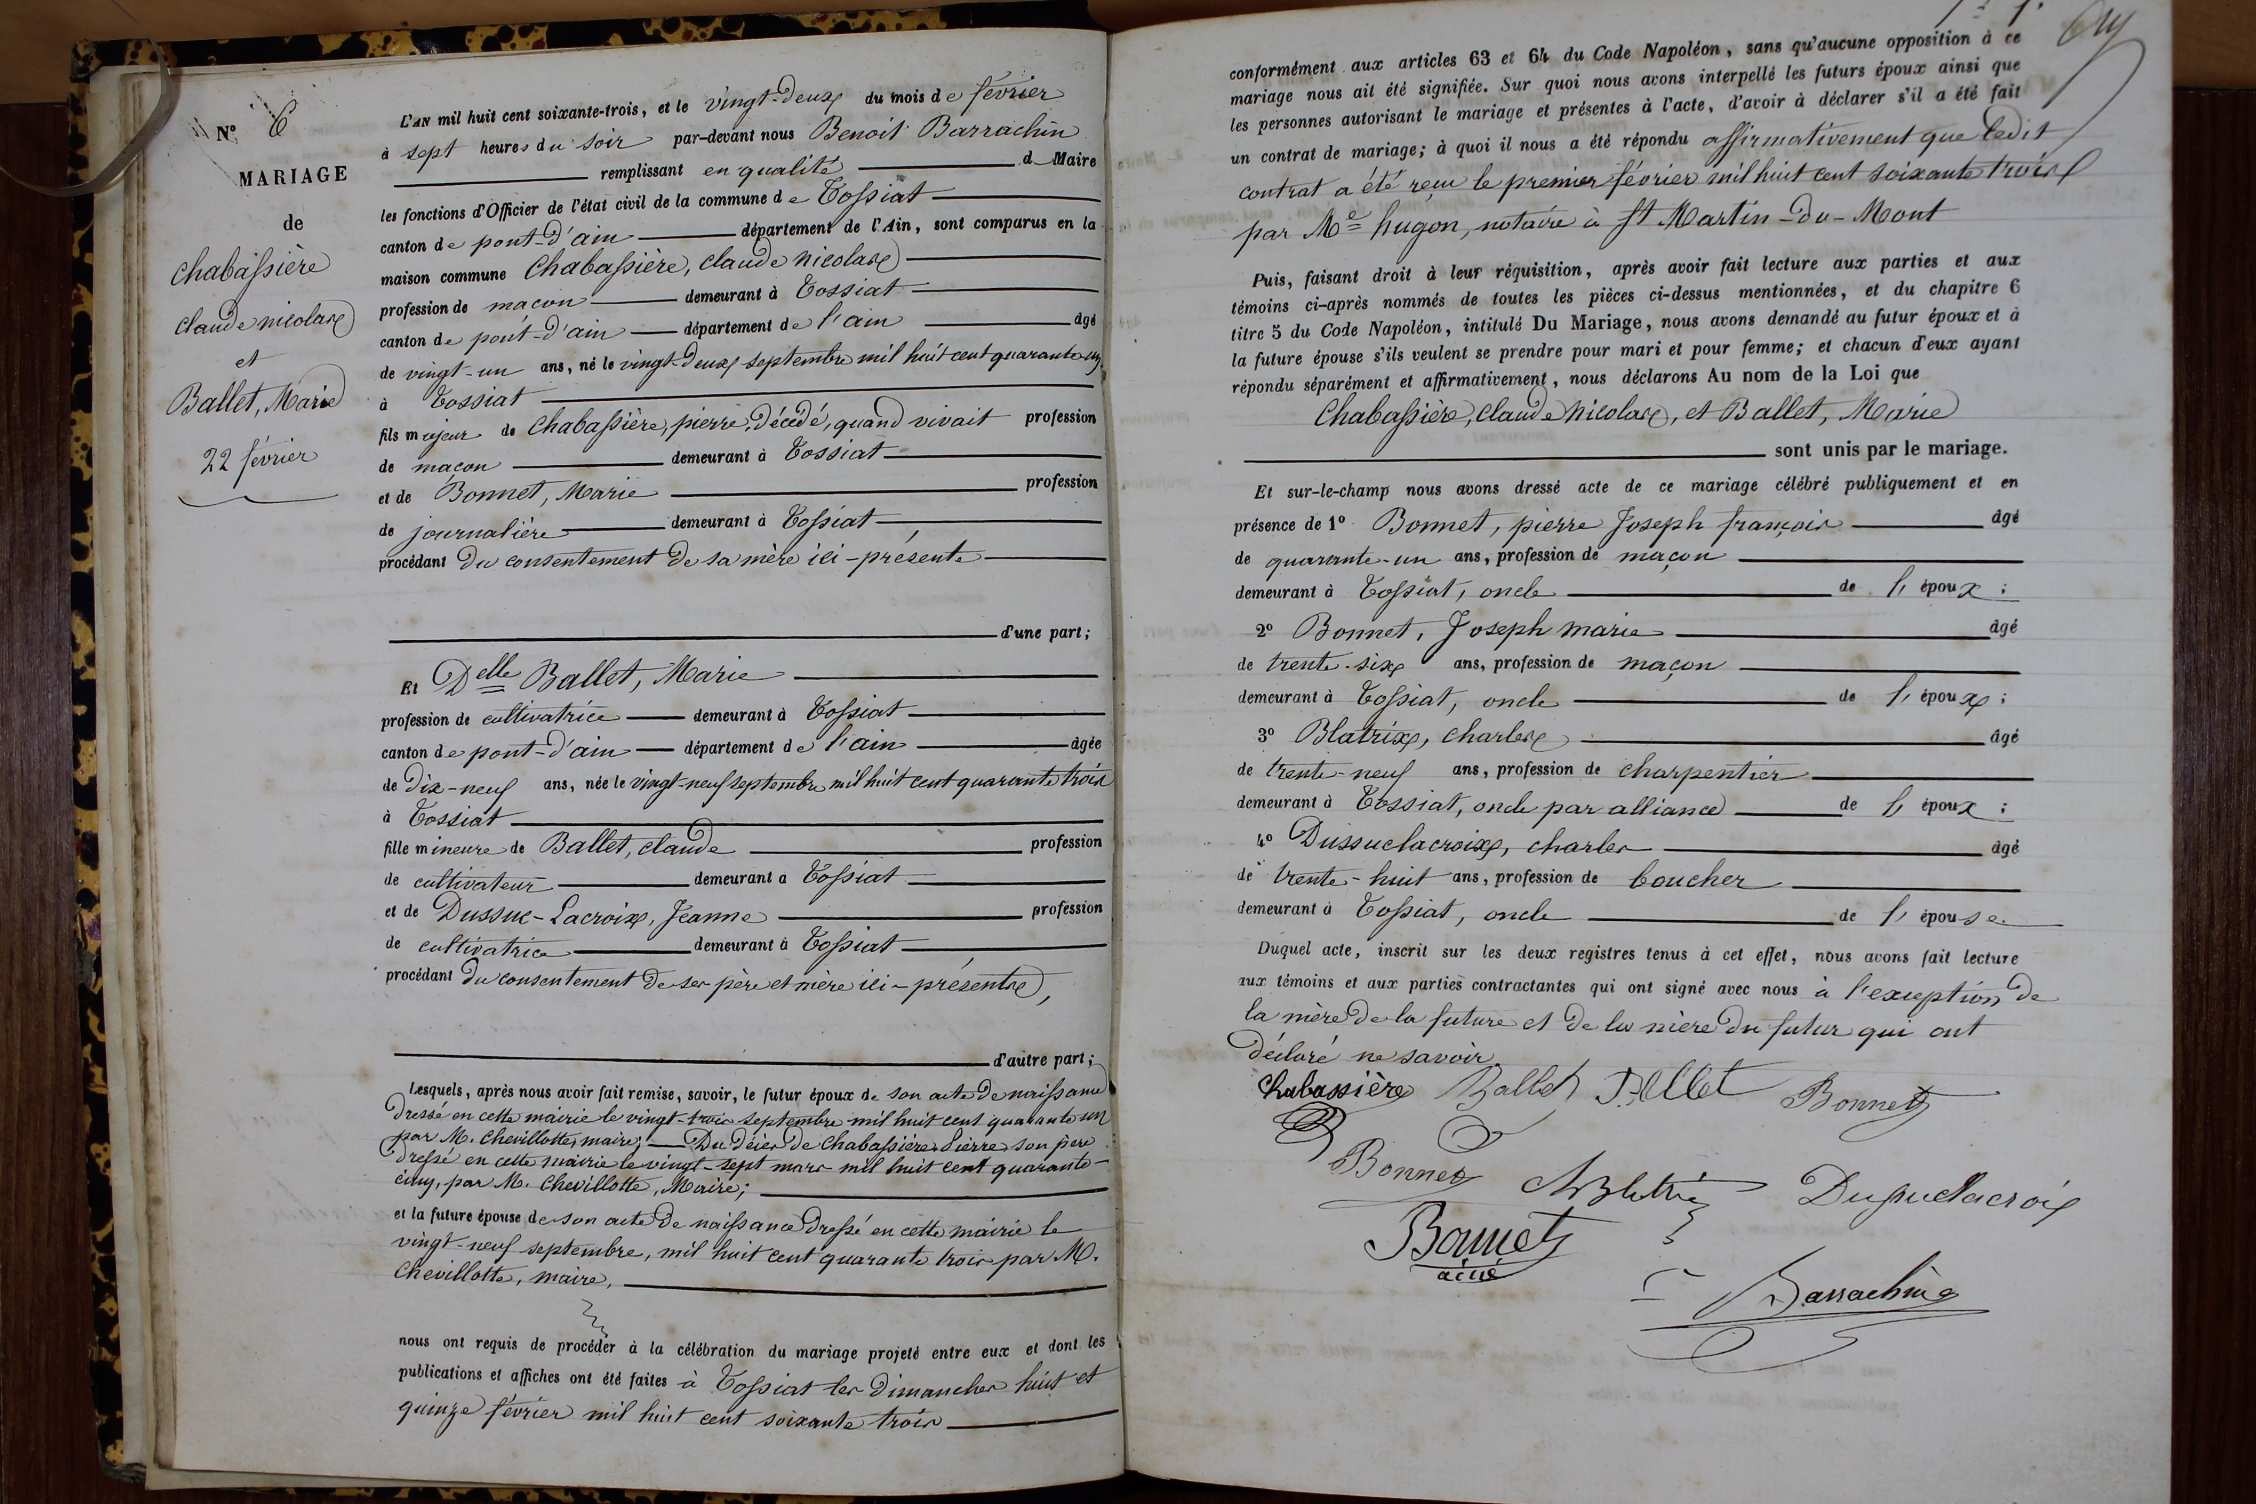 N° 6
MARIAGE
de
Chabassière
claude nicolas
et
Ballet, Marie
22 février
L'AN mil huit cent soixante-trois, et le vingt-deux du mois de février
à sept heures du soir par-devant nous Benoit Barrachin
remplissant en qualité d Maire
les fonctions d'Officier de l'état civil de la commune de Tossiat
canton de pont-d'ain département de l'Ain, sont comparus en la
maison commune Chabassière, claude nicolas
profession de maçon demeurant à Tossiat
canton de pont-d'ain département de l'ain âgé
de vingt-un ans, né le vingt-deux septembre mil huit cent quarante un
à Tossiat
fils majeur de Chabassière, pierre, décédé, quand vivait profession
de maçon demeurant à Tossiat
et de Bonnet, Marie profession
de journalière demeurant à Tossiat
procédant du consentement de sa mère ici-présente
d'une part;
Et Delle Ballet, Marie
profession de cultivatrice demeurant à Tossiat
canton de pont-d'ain département de l'ain âgée
de dix-neuf ans, née le vingt-neuf septembre mil huit cent quarante trois
à Tossiat
fille mineure de Ballet, claude profession
de cultivateur demeurant a Tossiat
et de Dussuc-Lacroix, Jeanne profession
de cultivatrice demeurant à Tossiat
procédant du consentement de ses père et mère ici-présents,
d'autre part;
Lesquels, après nous avoir fait remise, savoir, le futur époux de son acte de naissance
dressé en cette mairie le vingt-trois septembre mil huit cent quarante un
par M. Chevillotte, maire; Du décès de Chabassière Pierre son père
dressé en cette mairie le vingt-sept mars mil huit cent quarante-
cinq, par M. Chevillotte, Maire;
et la future épouse de son acte de naissance dressé en cette mairie le
vingt-neuf septembre, mil huit cent quarante trois par M.
Chevillotte, maire,
nous ont requis de procéder à la célébration du mariage projeté entre eux et dont les
publications et affiches ont été faites à Tossiat les dimanches huit et
quinze février mil huit cent soixante trois
conformément aux articles 63 et 64 du Code Napoléon, sans qu'aucune opposition à ce
mariage nous ait été signifiée. Sur quoi nous avons interpellé les futurs époux ainsi que
les personnes autorisant le mariage et présentes à l'acte, d'avoir à déclarer s'il a été fait
un contrat de mariage; à quoi il nous a été répondu affirmativement que ledit
contrat a été reçu le premier février mil huit cent soixante trois
par Me hugon, notaire à St Martin-du-Mont
Puis, faisant droit à leur réquisition, après avoir fait lecture aux parties et aux
témoins ci-après nommés de toutes les pièces ci-dessus mentionnées, et du chapitre 6
titre 5 du Code Napoléon, intitulé Du Mariage, nous avons demandé au futur époux et à
la future épouse s'ils veulent se prendre pour mari et pour femme; et chacun d'eux ayant
répondu séparément et affirmativement, nous déclarons Au nom de la Loi que
Chabassière, claude Nicolas, et Ballet, Marie
sont unis par le mariage.
Et sur-le-champ nous avons dressé acte de ce mariage célébré publiquement et en
présence de 1° Bonnet, pierre Joseph françois âgé
de quarante-un ans, profession de maçon
demeurant à Tossiat, oncle de l'époux;
2° Bonnet, Joseph marie âgé
de trente-six ans, profession de maçon
demeurant à Tossiat, oncle de l'époux;
3° Blatrix, charles âgé
de trente-neuf ans, profession de charpentier
demeurant à Tossiat, oncle par alliance de l'époux;
4° Dussuclacroix, charles âgé
de trente-huit ans, profession de boucher
demeurant à Tossiat, oncle de l'épouse
Duquel acte, inscrit sur les deux registres tenus à cet effet, nous avons fait lecture
aux témoins et aux parties contractantes qui ont signé avec nous à l'exception de
la mère de la future et de la mère du futur qui ont
déclaré ne savoir.
Chabassière Ballet Ballet Bonnet
Bonnet Blatrix Dussuclacroix
Bonnet
ainé
Barrachin